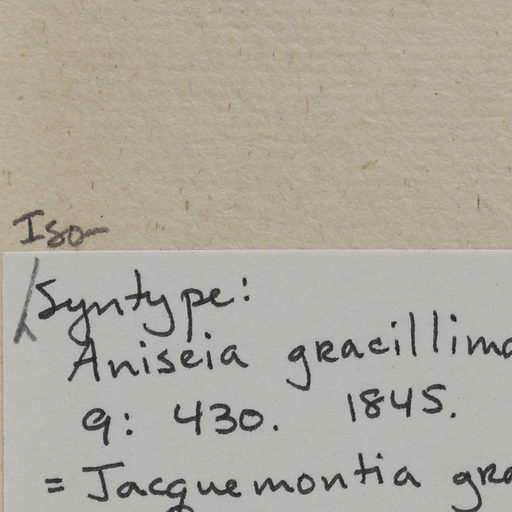 Iso-
Syntype:
Aniseia gracillima
9: 430. 1845.
= Jacquemontia gra